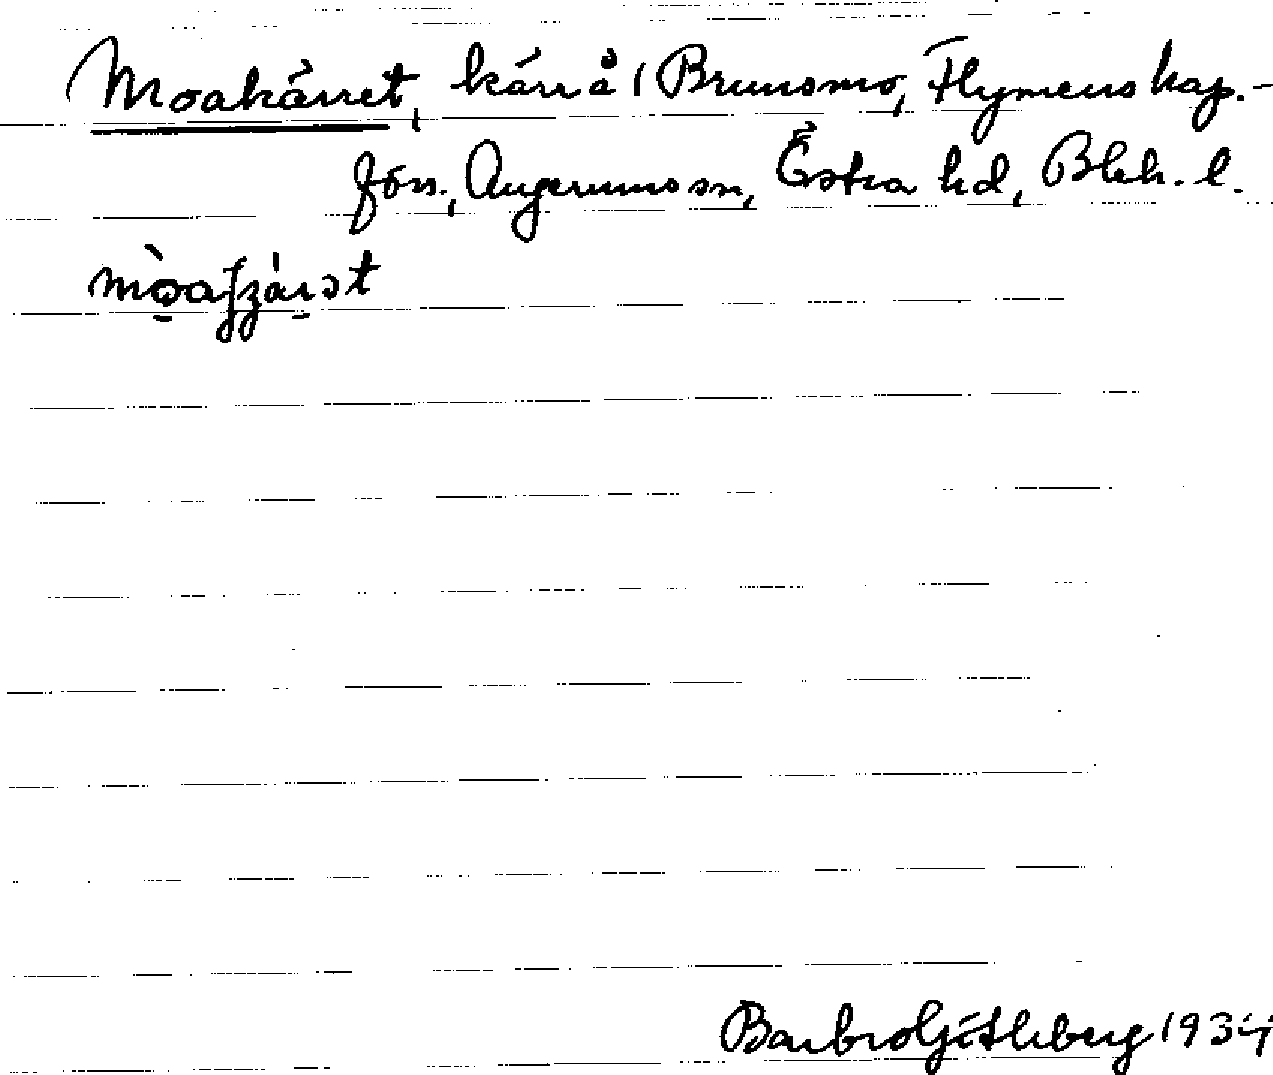 Moakärret, kärr å 1 Brunsmo, Flymens kap.-
förs., Augerums sn, Östra hd, Blek. l.
Barbro Götleberg 1934